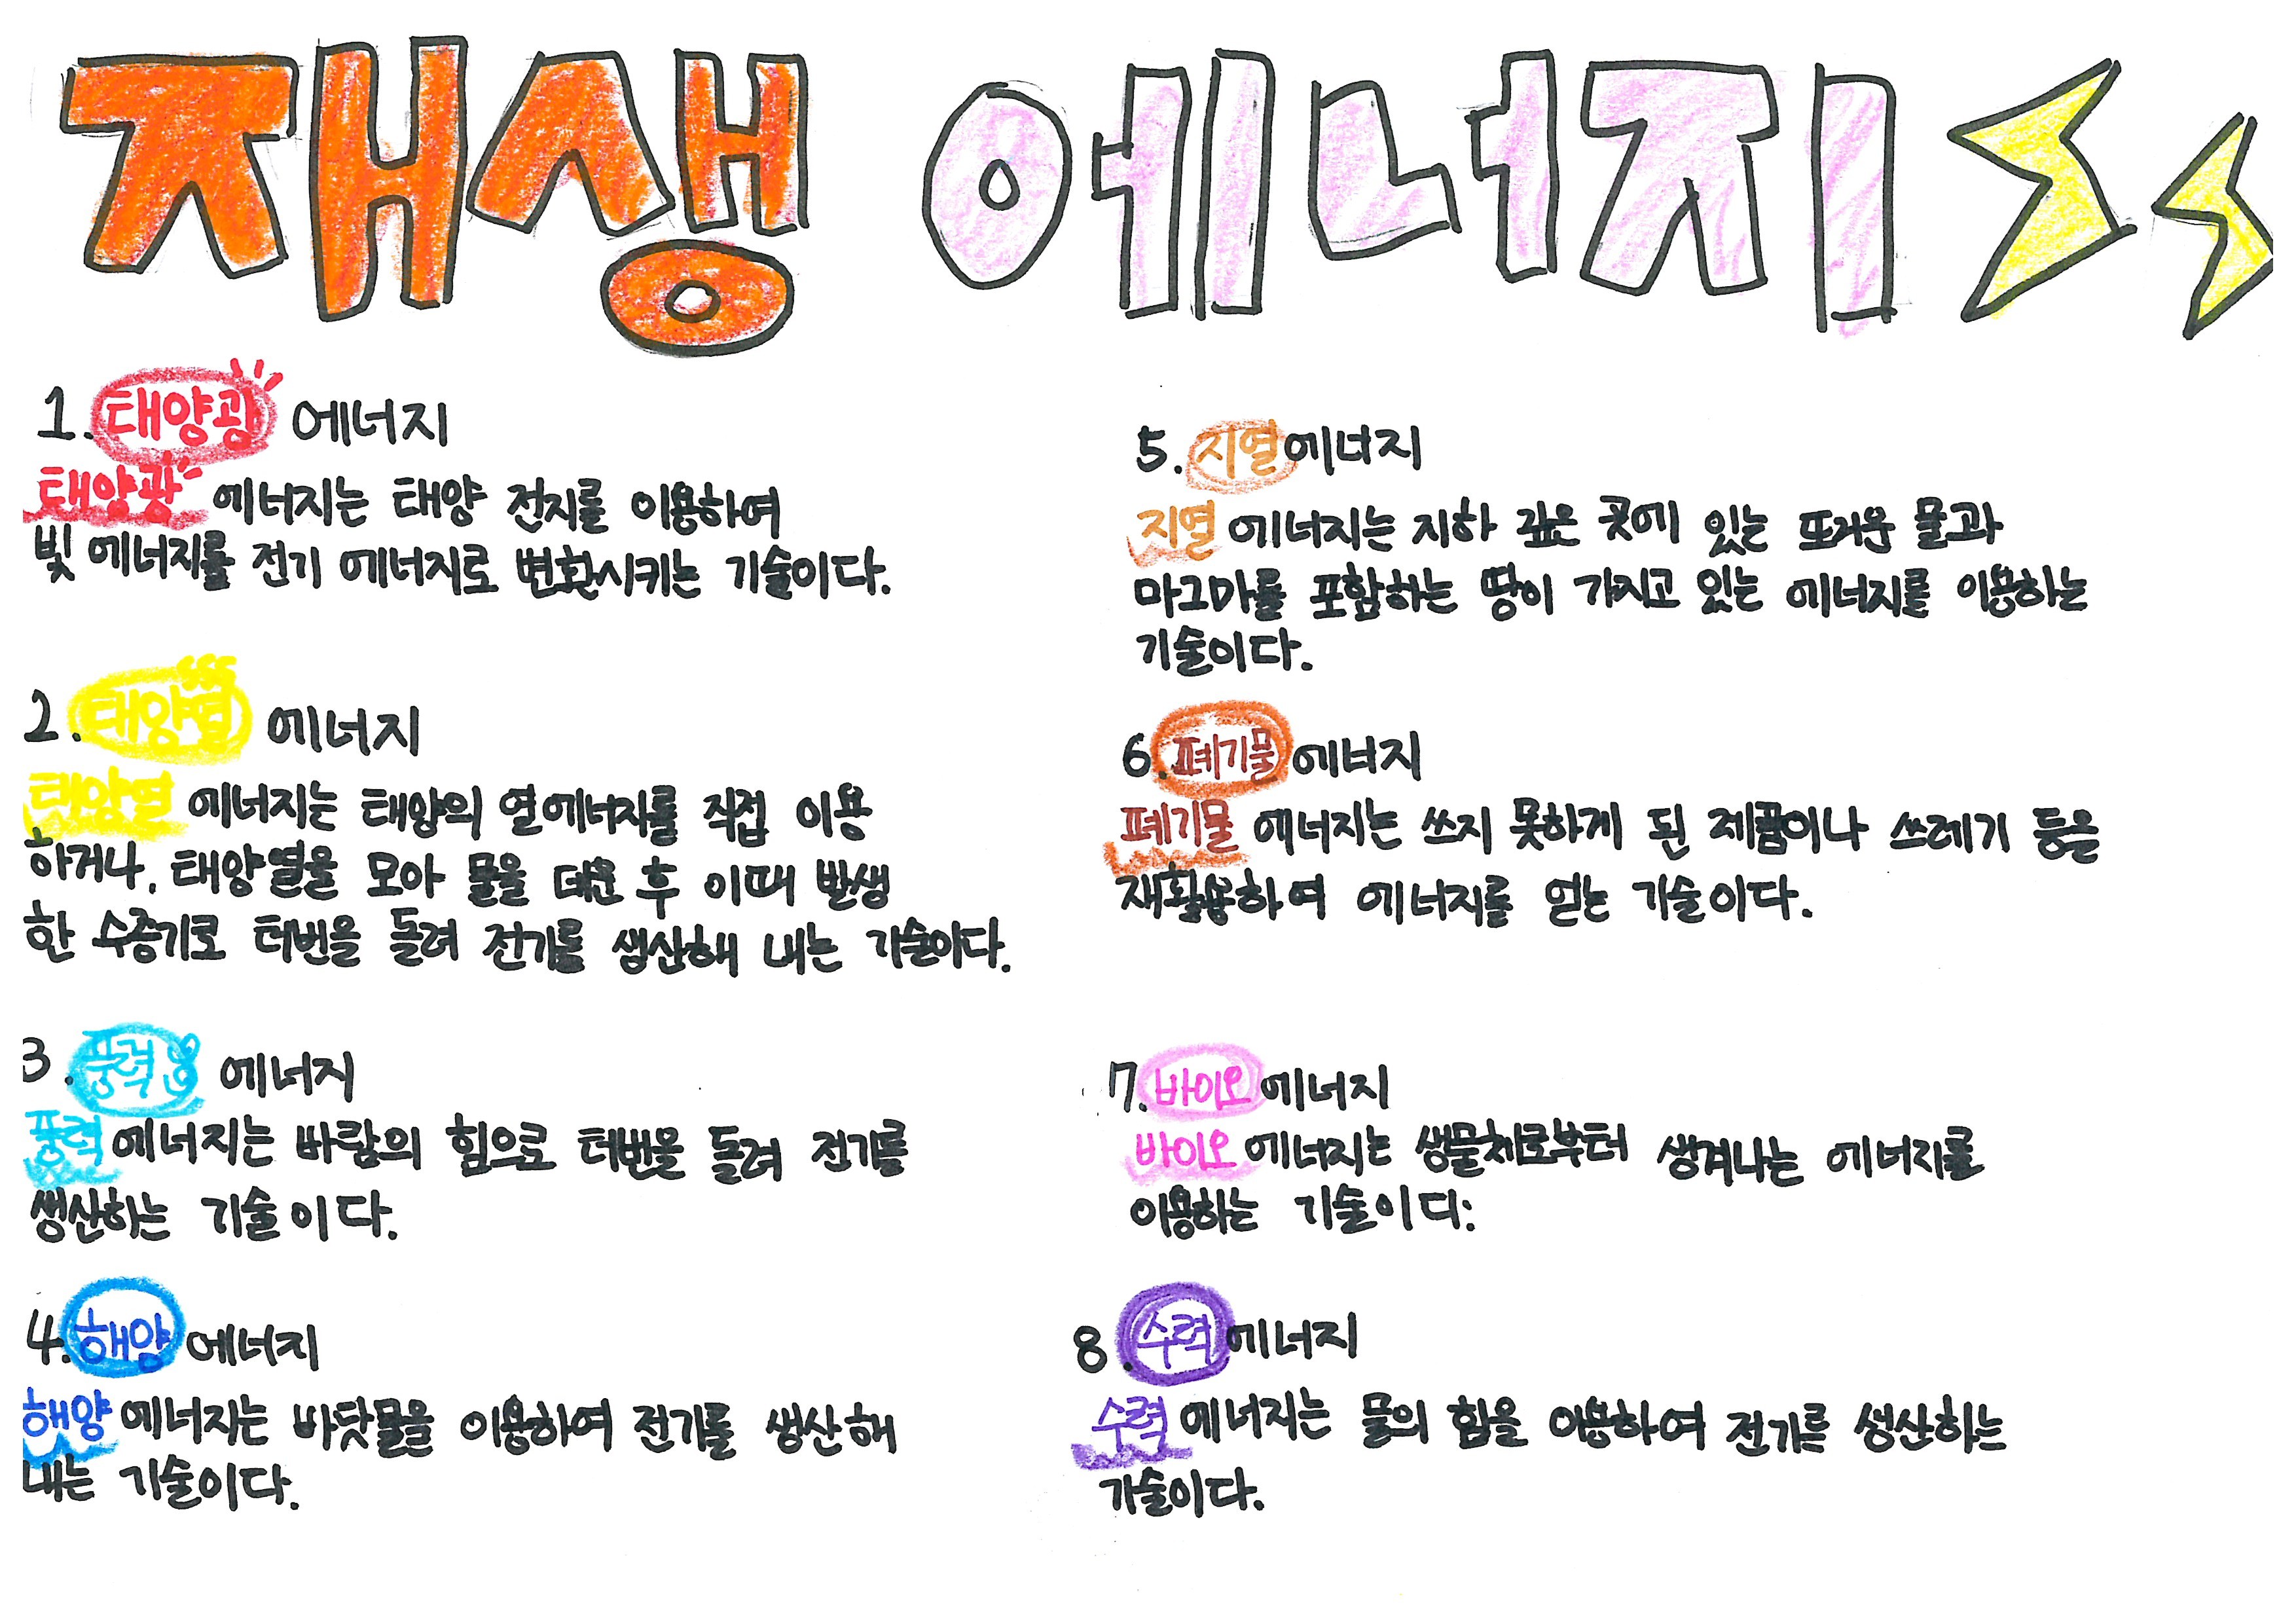 재생 에너지
1. 태양광 에너지
태양광 에너지는 태양 전지를 이용하여
빛 에너지를 전기 에너지로 변환시키는 기술이다.
2. 태양열 에너지
태양열 에너지는 태양의 열에너지를 직접 이용
하거나, 태양열을 모아 물을 데운 후 이때 발생
한 수증기로 터빈을 돌려 전기를 생산해 내는 기술이다.
3. 풍력 에너지
풍력 에너지는 바람의 힘으로 터빈을 돌려 전기를
생산하는 기술이다.
4. 해양 에너지
해양 에너지는 바닷물을 이용하여 전기를 생산해
내는 기술이다.
5. 지열 에너지
지열 에너지는 지하 깊은 곳에 있는 뜨거운 물과
마그마를 포함하는 땅이 가지고 있는 에너지를 이용하는
기술이다.
6. 폐기물 에너지
폐기물 에너지는 쓰지 못하게 된 제품이나 쓰레기 등을
재활용하여 에너지를 얻는 기술이다.
7. 바이오 에너지
바이오 에너지는 생물체로부터 생겨나는 에너지를
이용하는 기술이다.
8. 수력 에너지
수력 에너지는 물의 힘을 이용하여 전기를 생산하는
기술이다.